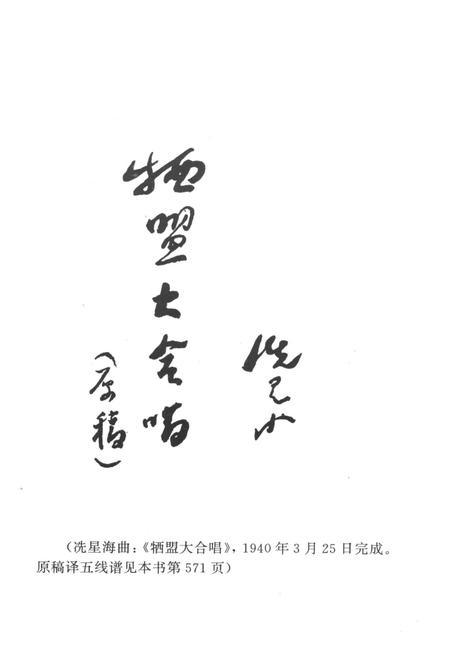 牺盟大合唱
（原稿）
冼星海
（冼星海曲：《牺盟大合唱》，1940年3月25日完成。
原稿译五线谱见本书第571页）